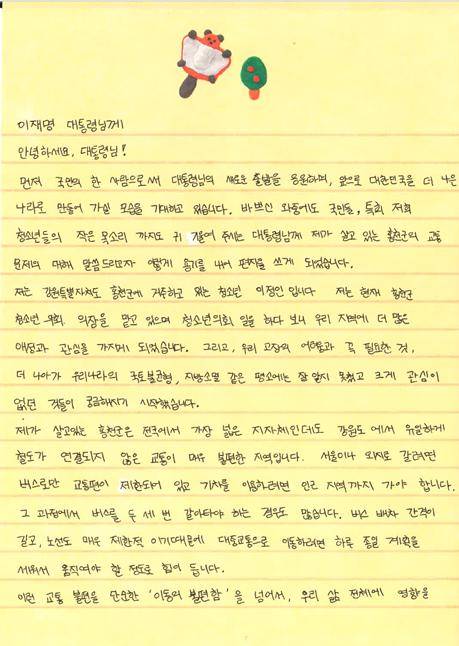 이재명 대통령님께
안녕하세요, 대통령님!
먼저 국민의 한 사람으로써 대통령님의 새로운 출발을 응원하며, 앞으로 대한민국을 더 나은
나라로 만들어 가실 모습을 기대하고 있습니다. 바쁘신 와중에도 국민들, 특히 저희
청소년들의 작은 목소리 까지도 귀 기울여 주시는 대통령님께 제가 살고 있는 홍천군의 교통
문제의 대해 말씀드리고자 이렇게 용기를 내어 편지를 쓰게 되었습니다.
저는 강원특별자치도 홍천군에 거주하고 있는 청소년 이정인 입니다 저는 현재 홍천군
청소년 의회 의장을 맡고 있으며 청소년의회 일을 하다 보니 우리 지역에 더 많은
애정과 관심을 가지며 되었습니다. 그리고, 우리 고장의 어려움과 꼭 필요한 것,
더 나아가 우리나라의 국토불균형, 지방소멸 같은 평소에는 잘 알지 못했고 크게 관심이
없던 것들이 궁금해지기 시작했습니다.
제가 살고있는 홍천군은 전국에서 가장 넓은 지자체인데도 강원도 에서 유일하게
철도가 연결되지 않은 교통이 매우 불편한 지역입니다. 서울이나 외지로 갈려면
버스로만 교통편이 제한되어 있고 기차를 이용하려면 인근 지역까지 가야 합니다.
그 과정에서 버스를 두 세 번 갈아타야 하는 경우도 많습니다. 버스 배차 간격이
길고, 노선도 매우 제한적 이기때문에 대중교통으로 이동하려면 하루 종일 계획을
세워서 움직여야 할 정도로 힘이 듭니다.
이런 교통 불편은 단순한 '이동의 불편함' 을 넘어서, 우리 삶 전체에 영향을